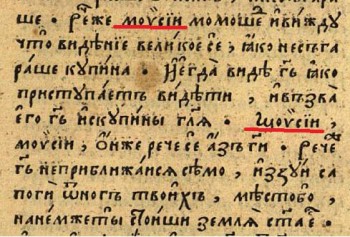 ше · Рече́же моѵ̈сїи мимоше́ и҆ви́жду
что̀ видѣ́нїе вели́кое се́, ꙗ҆́ко несъга
ра́ше купина̀ · И҆егда̀ видѣ̀ гь҃ ꙗ҆́ко
приступа́етъ ви́дѣти, и҆въ́зва̀
его̀ гь҃ искупины̀ гл҃ѧ · Щоѵ̈сїи,
моѵ̈сїи, о҆́нже речѐ се а҆́зъ гн҃ · Речѐ
гь҃ неприближа́исѧ сѣ́мо, и҆зꙋ́й са
погѝ ѿно́гъ твои́хъ, мѣ́стобо̀,
нане́мжеты̀ стои́ши землѧ̀ ст҃а е҆́ ·